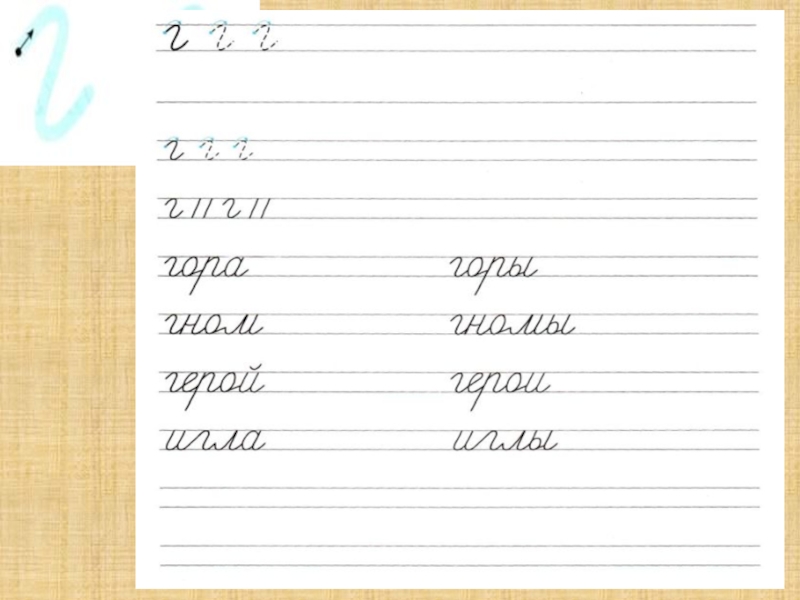 г
г г г
г г г
г г
гора горы
гном гномы
герой герои
игла иглы